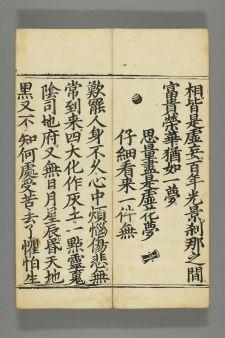 相皆是虛妄百年光景剎那之間
富貴榮華猶如一夢
思量盡是虛花夢
仔細看來一件無
歎罷人身不久心中煩惱傷悲無
常到來四大化作灰土一點靈魂
陰司地府又無日月星辰昬天地
黒又不知何處受苦去了懼怕生